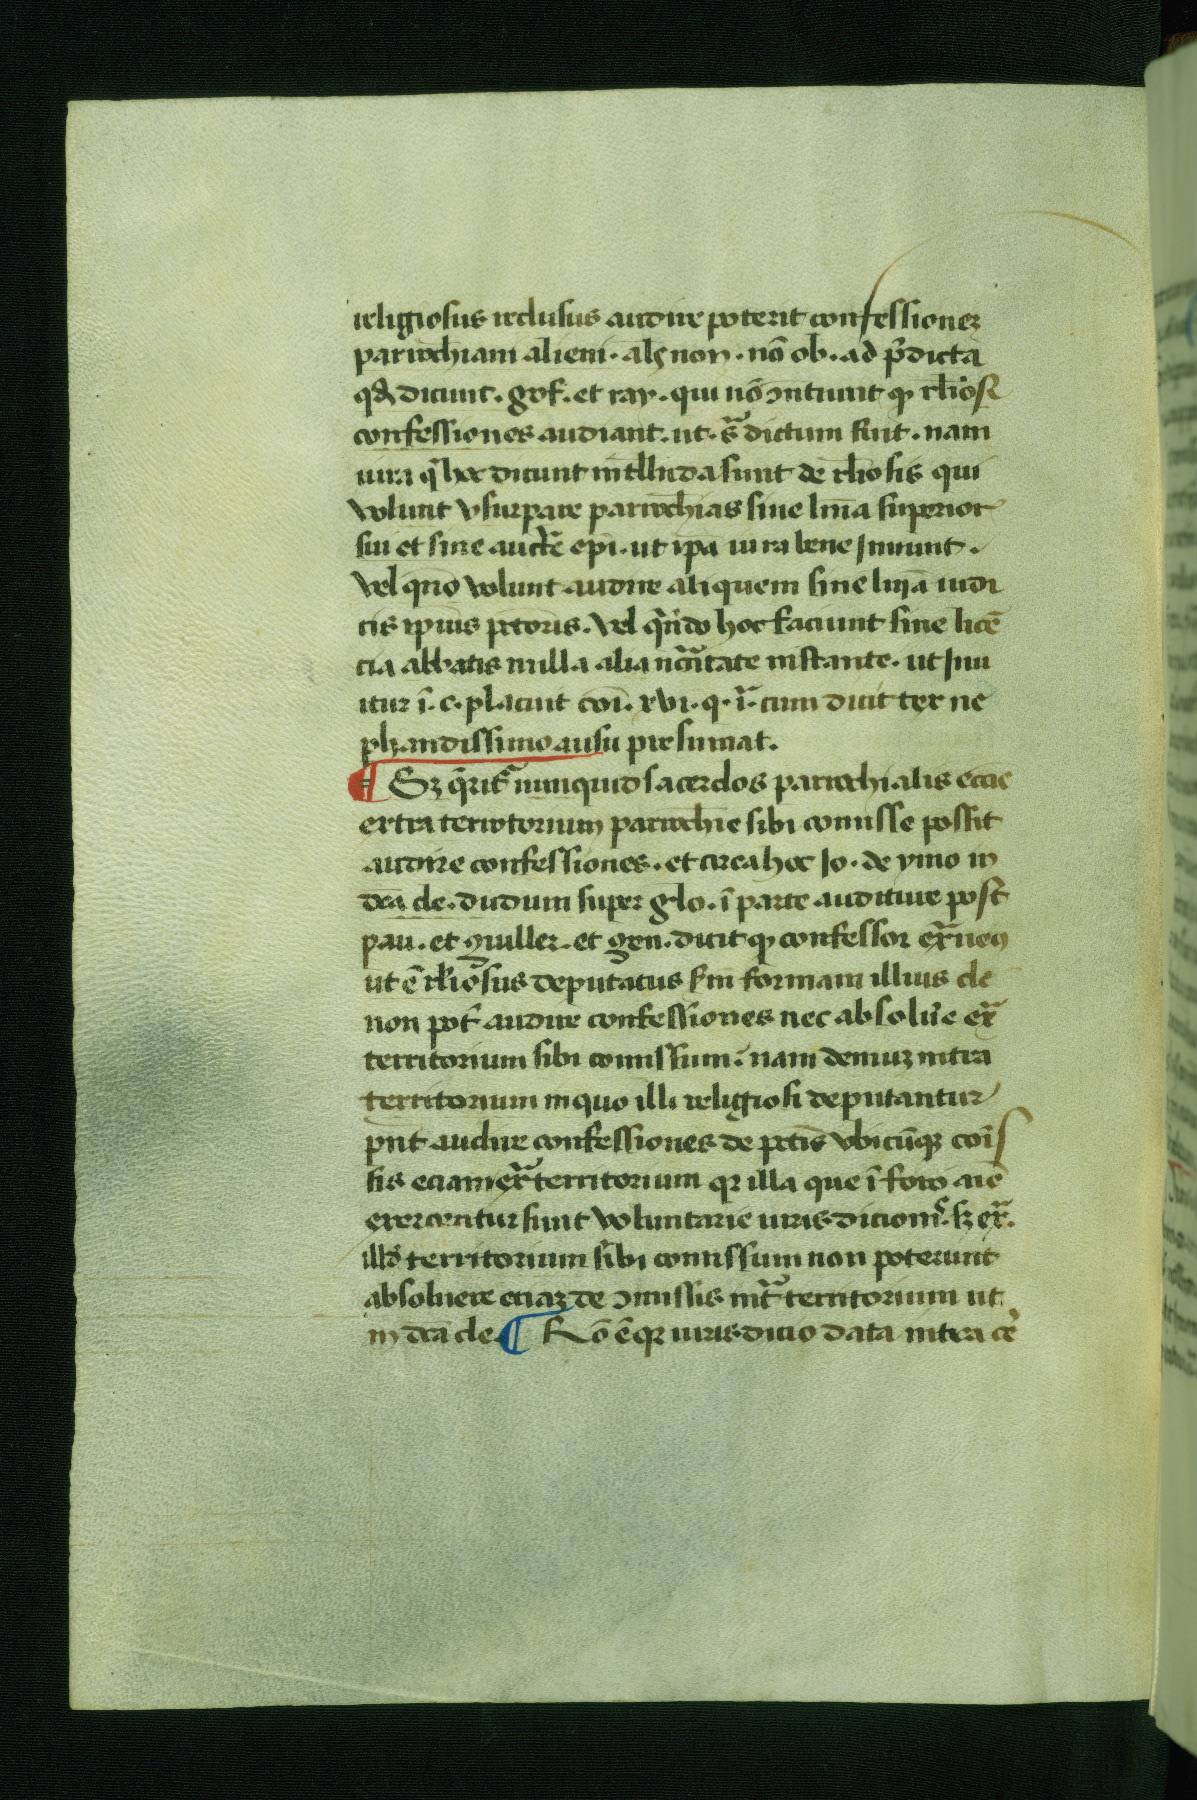 religiosus reclusus audire poterit confessionez
parrochiani alieni · als non · nō ob · ad p̄dicta
qd dicunt · gof · et ray · qui nō ↄntiunt q̄ rl̄iosi
confessiones audiant · ut · sͣ dictum fuit · nam
iura q̄ hec dicunt intelligenda sunt de rl̄iosis qui
volunt vsurpare parrochias sine lnīa superior
sui et sine auctē epī · ut ipa iura bene Innuunt ·
Vel qn̄o volunt audire aliquem sine lnīa iudi
cis ipius pctoris · Vel qn̄do hoc faciunt sine licē
cia abbatis nulla alia ncc̄itate instante · ut Inu
itur ī · c · placuit coī · xvi · q · ī · cum dicit tex ne
phandissimo ausu presumat.
¶ Sz q̄ritͬ nunquid sacerdos parrochialis eccīe
extra territorium parrochie sibi comisse possit
audire confessiones · et circa hoc Io · de ymo in
dcā cle · dudum super glo · ī parte auditiue post
pau · et guiller · et gen · dicit q̄ confessor ex̄neus
ut ē rl̄iosus deputatus scdm formam illius cle
non pot̄ audire confessiones nec absolūe exͣ
territorium sibi comissum · nam demuz intra
territorium in quo illi religiosi deputantur
pn̄t audire confessiones de pctīs vbicūqꝫ comīs
sis eciam exͣ territorium qꝛ illa que ī foro aīe
exercentur sunt voluntarie iurisdicionis · sꝫ exͣ ·
illd territorium sibi comissum non poterunt
absoluere eciaz de ↄmissis intͣ territorium ut
in dcā cle ¶ Rō ē qꝛ iurisdicio data intra cer̄